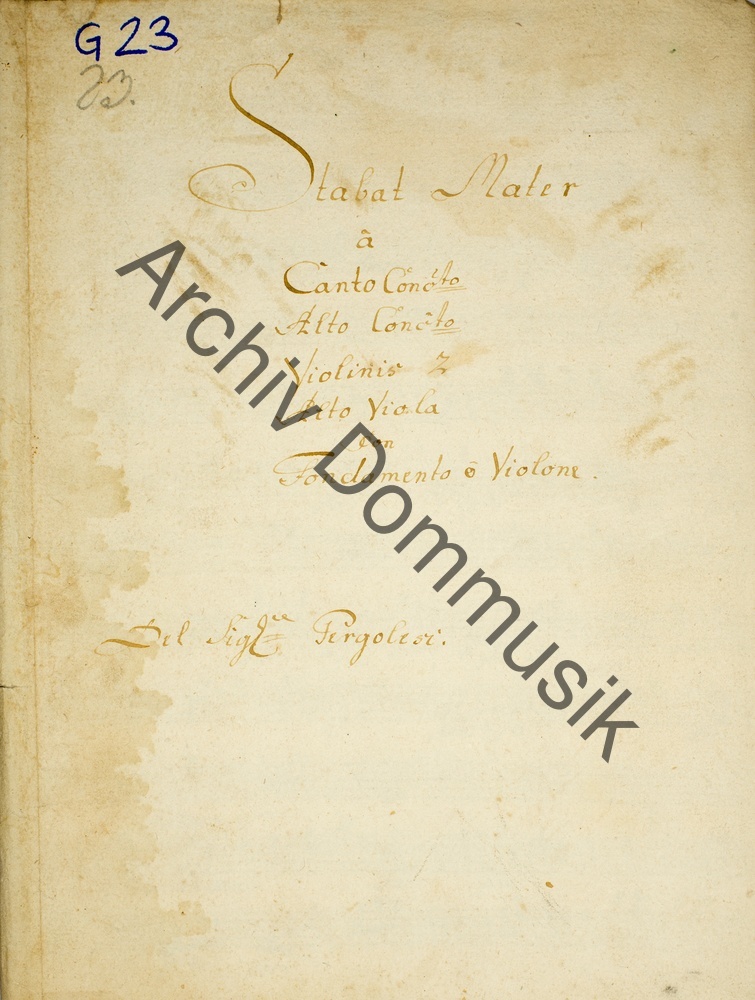 G 23
23.
Stabat Mater
â
Canto Conc̃to
Alto Conc̃to
Violinis 2
Alto Viola
Con
Fondamento ô Violone.
Del Sig.re Pergolesi.
Archiv Dommusik